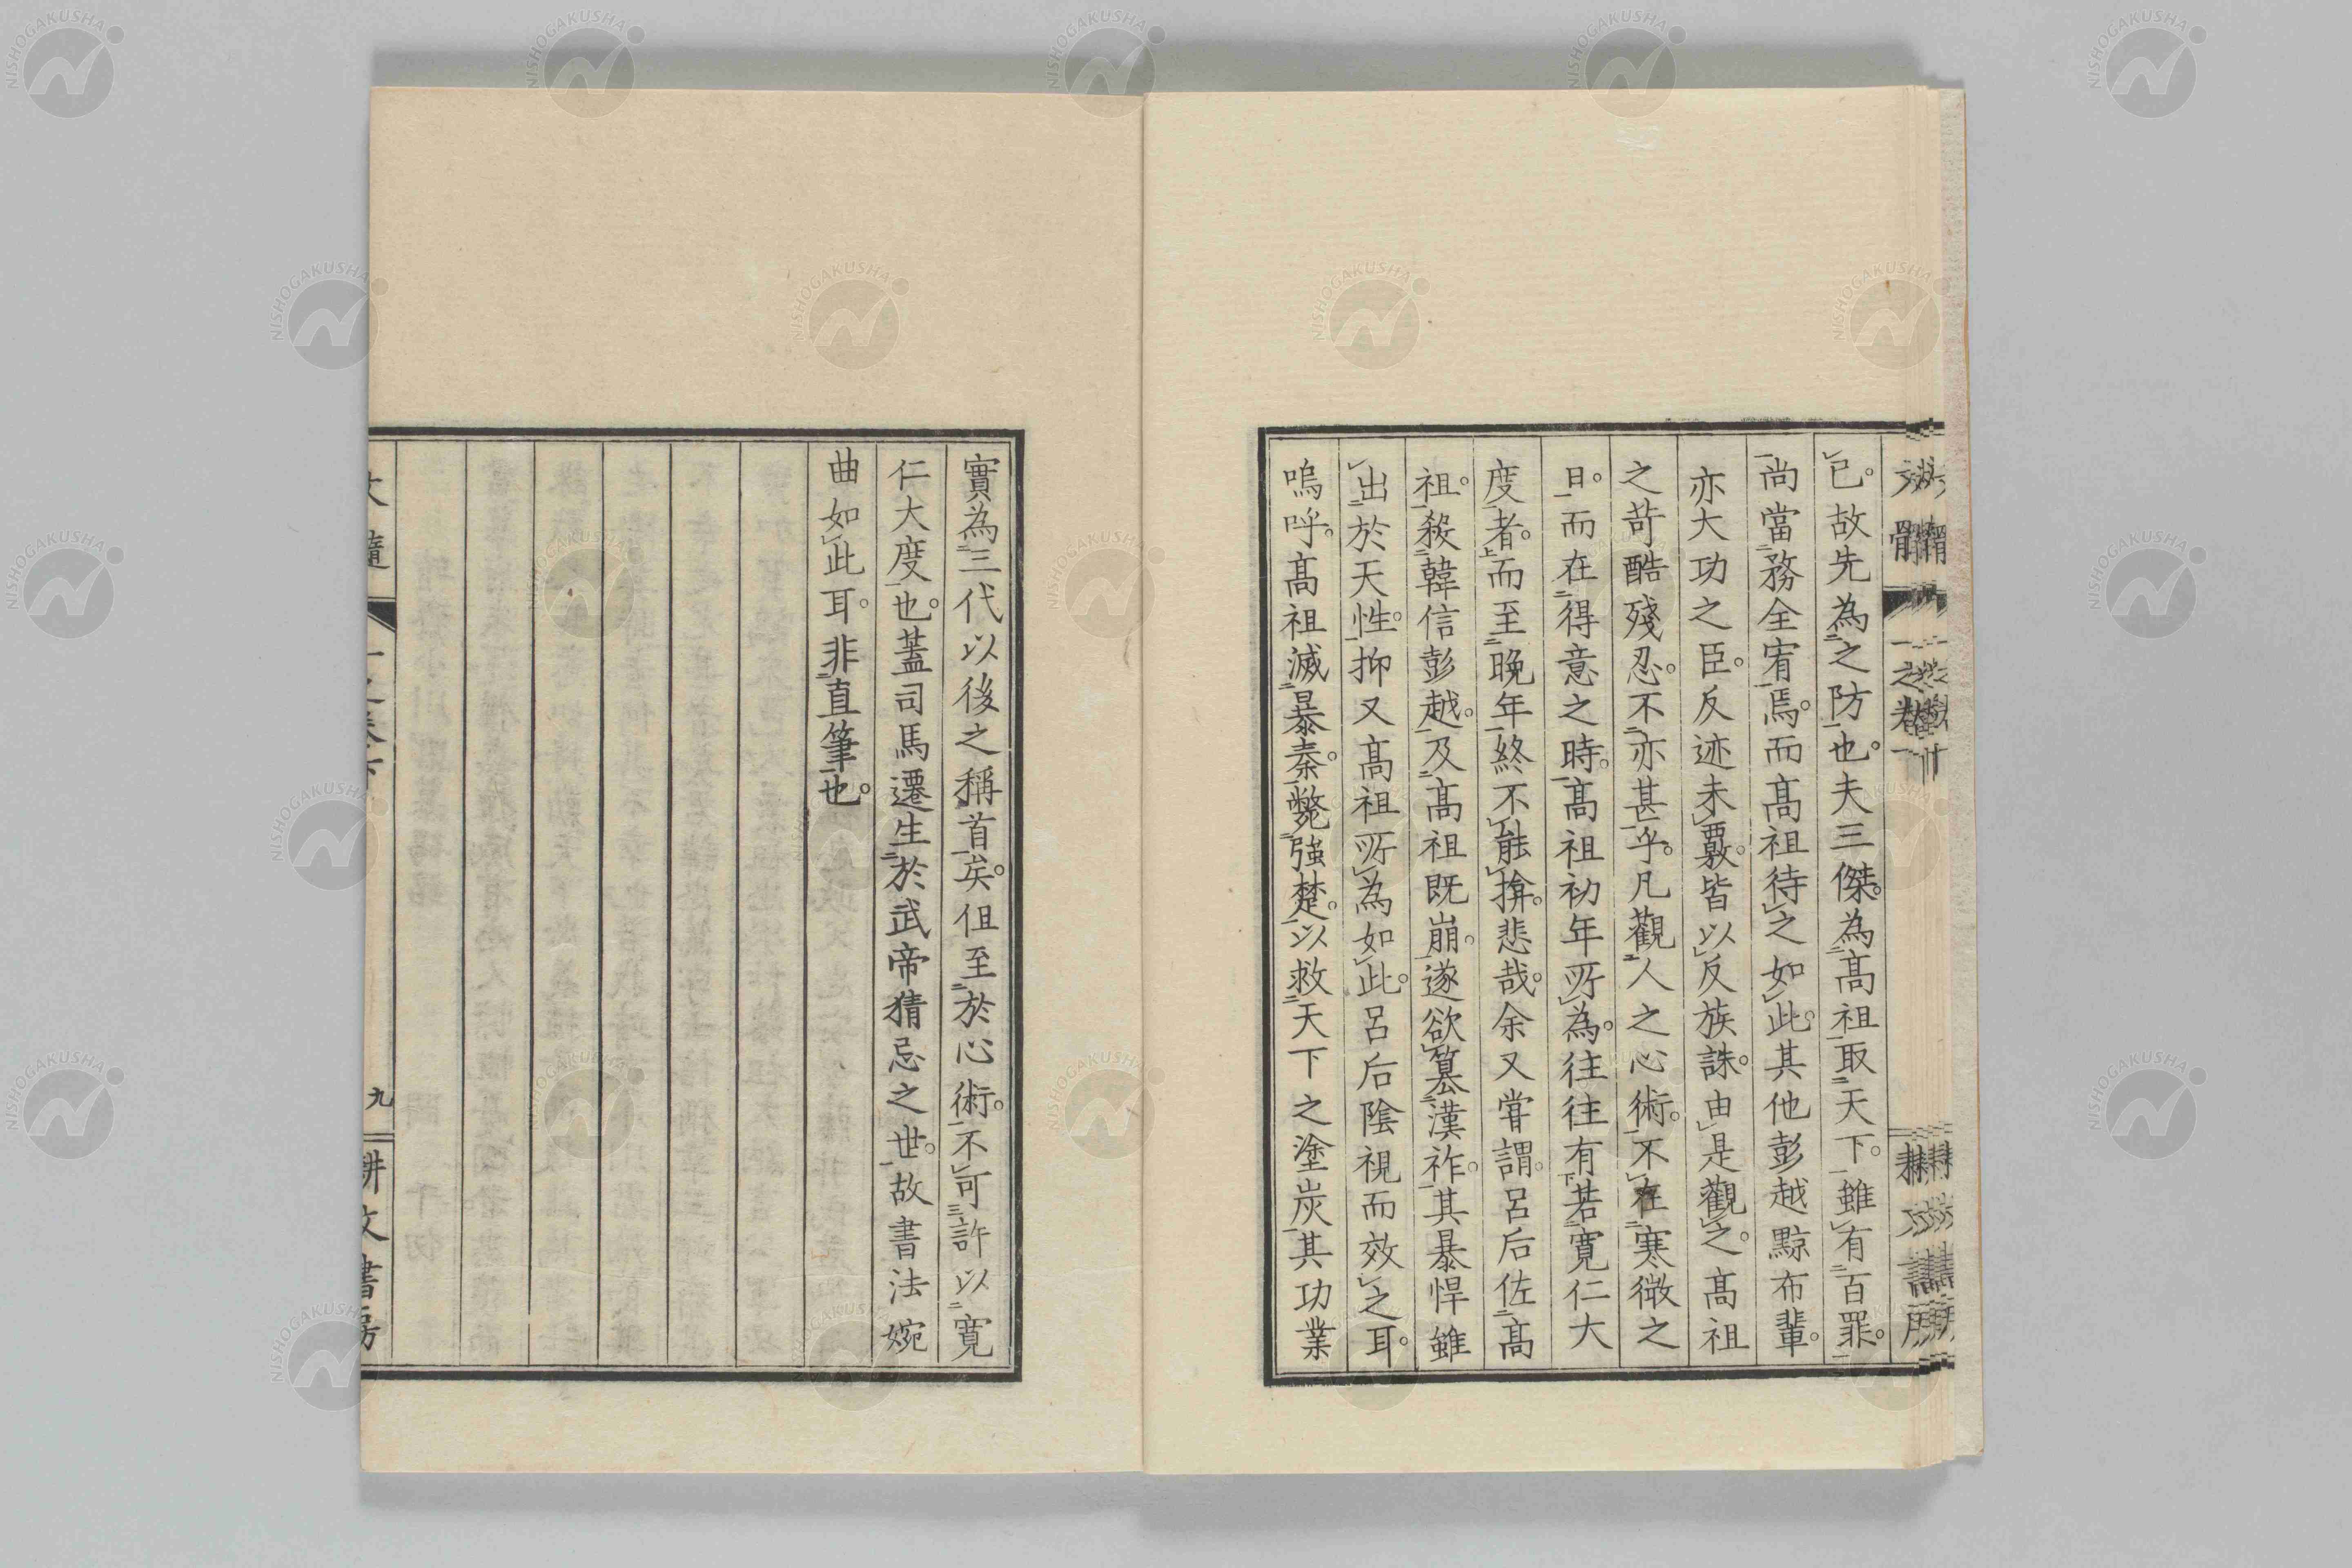 已。故先為之防也。夫三傑。為髙祖取天下。雖有百罪。
尚當務全宥焉。而髙祖待之如此。其他彭越黥布輩。
亦大功之臣。反迹未覈。皆以反族誅。由是觀之。髙祖
之苛酷殘忍。不亦甚乎。凡觀人之心術。不在寒微之
日。而在得意之時。髙祖初年所為。往往有若寛仁大
度者。而至晩年終不能揜。悲哉。余又甞謂。呂后佐髙
祖。殺韓信彭越。及髙祖既崩。遂欲簒漢祚。其暴悍雖
出於天性。抑又髙祖所為如此。呂后陰視而效之耳。
嗚呼。髙祖滅暴秦。斃強楚。以救天下之塗炭。其功業
實為三代以後之稱首矣。但至於心術。不可許以寛
仁大度也。蓋司馬遷生於武帝猜忌之世。故書法婉
曲如此耳。非直筆也。
九
耕文書房
NISHOGAKUSHA